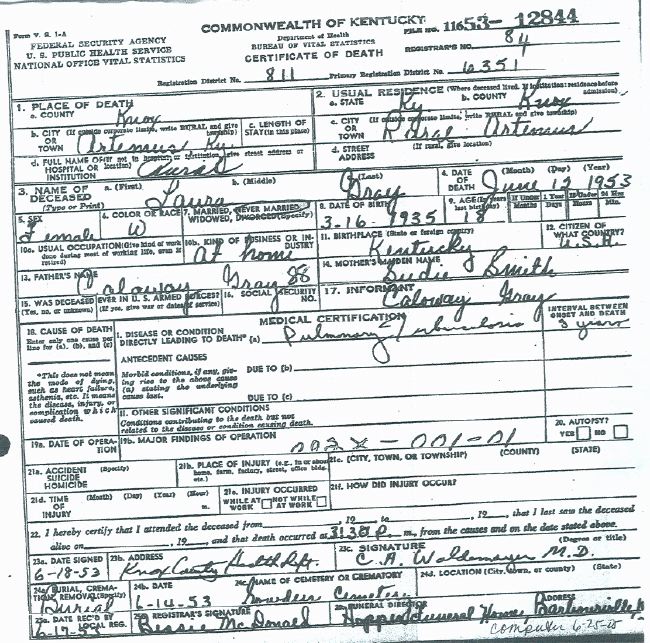 COMMONWEALTH OF KENTUCKY
FILE NO. 11653-12844
Form V. S. 1-A
FEDERAL SECURITY AGENCY
U. S. PUBLIC HEALTH SERVICE
NATIONAL OFFICE VITAL STATISTICS
Department of Health
BUREAU OF VITAL STATISTICS
CERTIFICATE OF DEATH
REGISTRAR'S NO. 84
Registration District No. 811 Primary Registration District No. 6351
1. PLACE OF DEATH
a. COUNTY Knox
2. USUAL RESIDENCE (Where deceased lived. If institution: residence before admission)
a. STATE Ky b. COUNTY Knox
b. CITY (If outside corporate limits, write RURAL and give township)
OR TOWN Artemus Ky.
c. LENGTH OF STAY (in this place)
c. CITY (If outside corporate limits, write RURAL and give township)
OR TOWN Rural Artemus
d. FULL NAME OF (If not in hospital or institution, give street address or location)
HOSPITAL OR INSTITUTION Rural
d. STREET ADDRESS (If rural, give location)
3. NAME OF DECEASED (Type or Print)
a. (First) Laura b. (Middle) c. (Last) Gray
4. DATE OF DEATH (Month) (Day) (Year) June 12 1953
5. SEX Female
6. COLOR OR RACE W
7. MARRIED, NEVER MARRIED, WIDOWED, DIVORCED (Specify)
8. DATE OF BIRTH 3-16-1935
9. AGE (In years last birthday) 18
If Under 1 Year Months Days
If Under 24 Hrs. Hours Min.
10a. USUAL OCCUPATION (Give kind of work done during most of working life, even if retired)
10b. KIND OF BUSINESS OR INDUSTRY At home
11. BIRTHPLACE (State or foreign country) Kentucky
12. CITIZEN OF WHAT COUNTRY? U.S.A.
13. FATHER'S NAME Caloway Gray 88
14. MOTHER'S MAIDEN NAME Sudie Smith
15. WAS DECEASED EVER IN U. S. ARMED FORCES?
(Yes, no, or unknown) (If yes, give war or dates of service)
16. SOCIAL SECURITY NO.
17. INFORMANT Caloway Gray
18. CAUSE OF DEATH
Enter only one cause per line for (a), (b), and (c)
MEDICAL CERTIFICATION
INTERVAL BETWEEN ONSET AND DEATH
I. DISEASE OR CONDITION DIRECTLY LEADING TO DEATH* (a) Pulmonary Tuberculosis 3 years
*This does not mean the mode of dying, such as heart failure, asthenia, etc. It means the disease, injury, or complication which caused death.
ANTECEDENT CAUSES
Morbid conditions, if any, giving rise to the above cause (a) stating the underlying cause last.
DUE TO (b)
DUE TO (c)
II. OTHER SIGNIFICANT CONDITIONS
Conditions contributing to the death but not related to the disease or condition causing death.
19a. DATE OF OPERATION
19b. MAJOR FINDINGS OF OPERATION
002X-001-01
20. AUTOPSY?
YES NO
21a. ACCIDENT SUICIDE HOMICIDE (Specify)
21b. PLACE OF INJURY (e.g., in or about home, farm, factory, street, office bldg., etc.)
21c. (CITY, TOWN, OR TOWNSHIP) (COUNTY) (STATE)
21d. TIME OF INJURY (Month) (Day) (Year) (Hour) m.
21e. INJURY OCCURRED
WHILE AT WORK NOT WHILE AT WORK
21f. HOW DID INJURY OCCUR?
22. I hereby certify that I attended the deceased from , 19 to , 19 , that I last saw the deceased
alive on , 19 , and that death occurred at 3:30 P. m., from the causes and on the date stated above.
23a. DATE SIGNED 6-18-53
23b. ADDRESS Knox County Health Dept.
23c. SIGNATURE (Degree or title)
M.D.
24a. BURIAL, CREMATION, REMOVAL (Specify) Burial
24b. DATE 6-14-53
24c. NAME OF CEMETERY OR CREMATORY
Cemetery
24d. LOCATION (City, town, or county) (State)
25a. DATE REC'D BY LOCAL REG. 6-17-53
REGISTRAR'S SIGNATURE Bessie McDonald
FUNERAL DIRECTOR ADDRESS
Hopper Funeral Home Barbourville
computer 6-25-